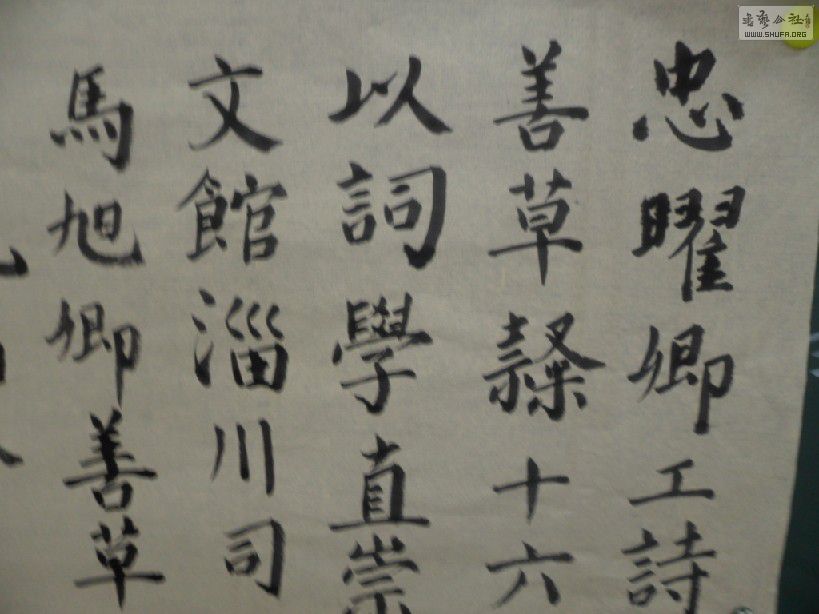 忠曜卿工詩
善草隸十六
以詞學直崇
文館淄川司
馬旭卿善草
書藝公社
WWW.SHUFA.ORG